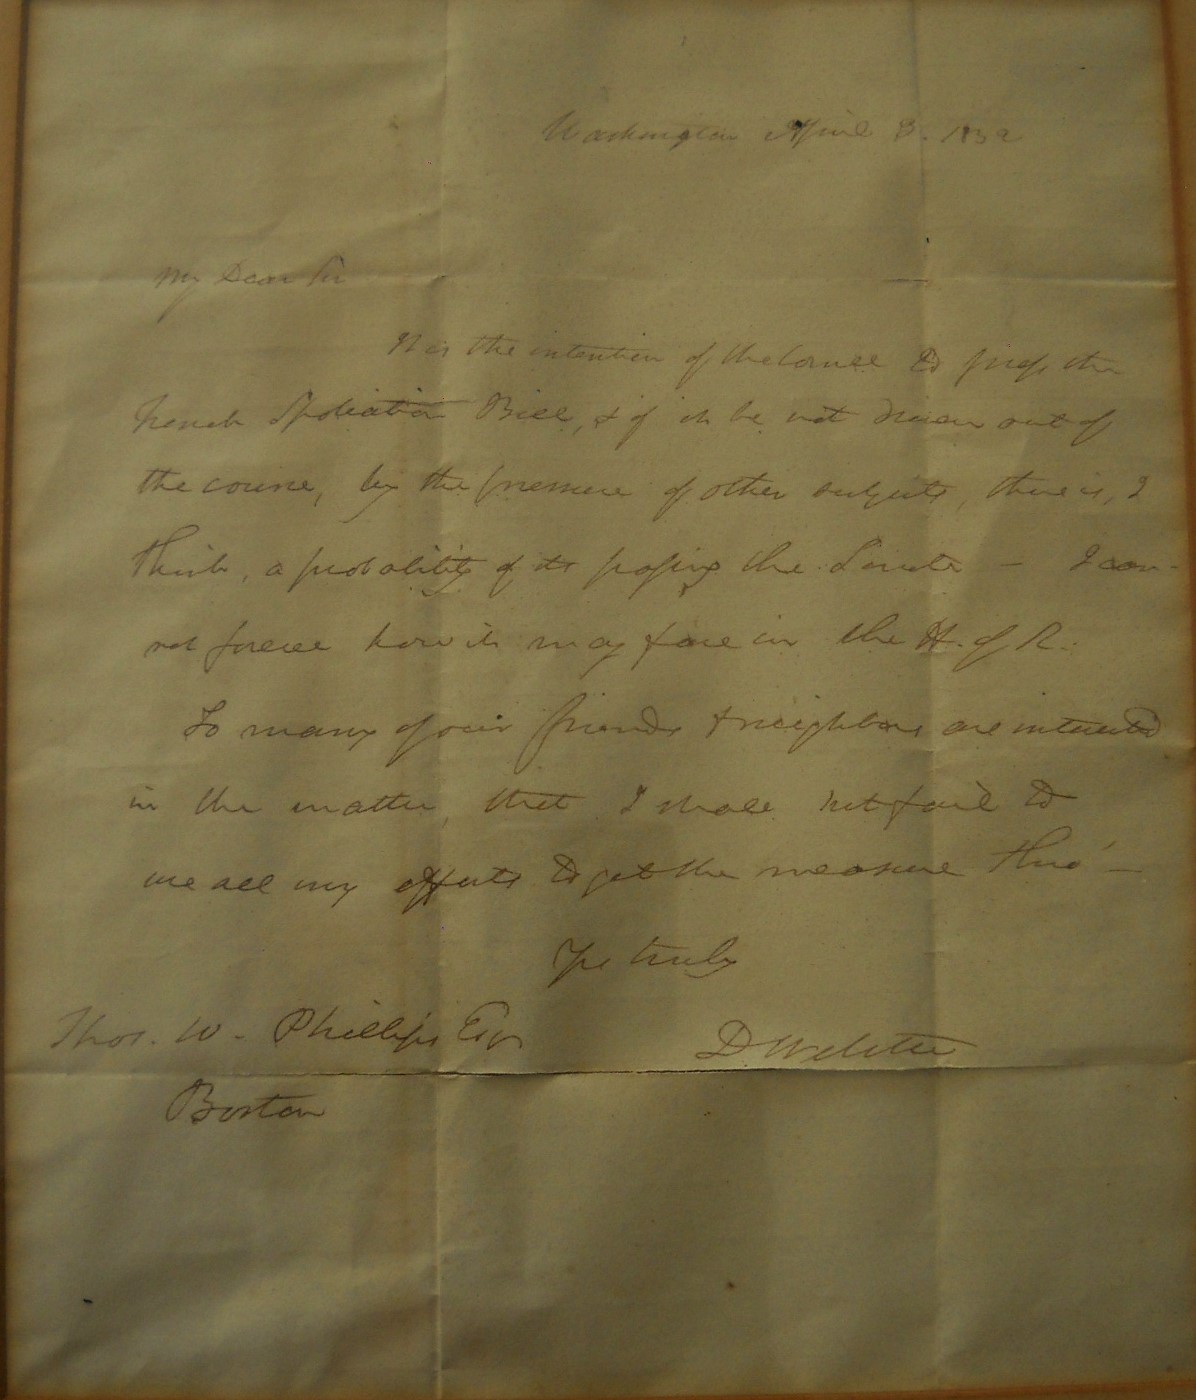 Washington April 3. 1832
My Dear Sir
It is the intention of the to press the
French Spoliation Bill, & if it be not driven out of
the course, by the pressure of other subjects, there is, I
think, a probability of its passing the Senate — I can-
not foresee how it may fare in the H. of R.
So many of our friends & neighbors are interested
in the matter, that I shall not fail to
use all my efforts to get the measure thro' —
Yrs truly
Thos. W. Phillips Esqr
D Webster
Boston